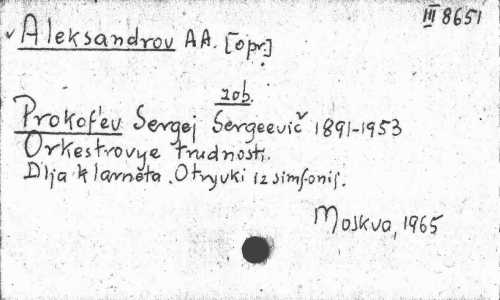 III 8651
Aleksandrov A A. [opr.]
zob.
Prokof'ev Sergej Sergeevič 1891-1953
Orkestrovye trudnosti.
Dlja klarneta. Otryvki iz simfonij.
Moskva, 1965